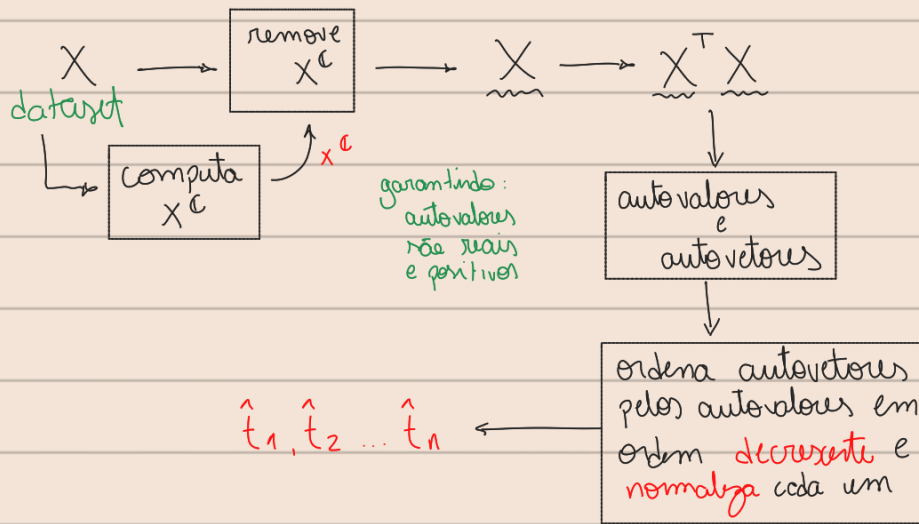 X
dataset
remove
X^C
X
X^T X
computa
X^C
x^C
garantindo:
autovalores
são reais
e positivos
autovalores
e
autovetores
ordena autovetores
pelos autovalores em
ordem decrescente e
normaliza cada um
t̂1, t̂2 ... t̂n